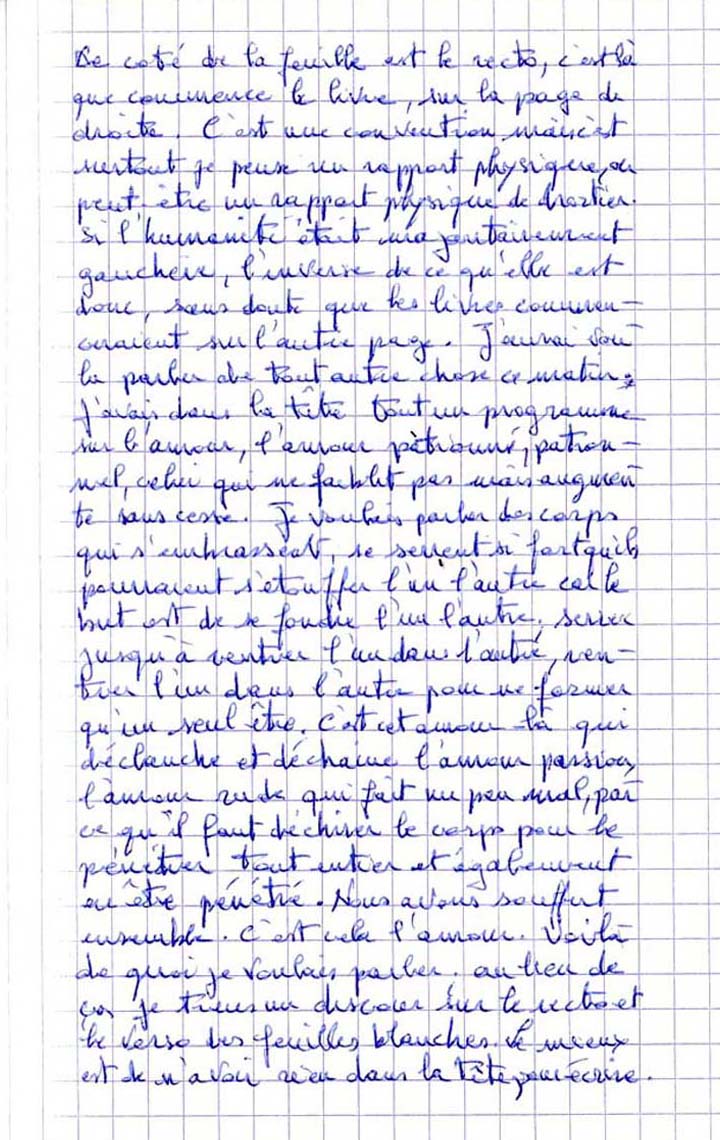 Ce coté de la feuille est le recto, c'est là
que commence le livre, sur la page de
droite. C'est une convention mais c'est
surtout je pense un rapport physique, ou
peut-être un rapport physique de droitier.
Si l'humanité était majoritairement
gauchère, l'inverse de ce qu'elle est
donc, sans doute que les livres commen-
ceraient sur l'autre page. J'aurai vou
lu parler de tout autre chose ce matin,
j'avais dans la tête tout un programme
sur l'amour, l'amour patronné, patron-
nel, celui qui ne faiblit pas mais augmen
te sans cesse. Je voulais parler des corps
qui s'embrassent, se serrent si fort qu'ils
pourraient s'étouffer l'un l'autre car le
but est de se fondre l'un l'autre, serrer
jusqu'à rentrer l'un dans l'autre, ren-
trer l'un dans l'autre pour ne former
qu'un seul être. C'est cet amour-là qui
déclanche et déchaine l'amour passion,
l'amour rude qui fait un peu mal, par
ce qu'il faut déchirer le corps pour le
pénétrer tout entier et également
en être pénétré. Nous avons souffert
ensemble. C'est cela l'amour. Voilà
de quoi je voulais parler. au lieu de
ça je tiens un discour sur le recto et
le verso des feuilles blanches. Le mieux
est de n'avoir rien dans la tête pour écrire.